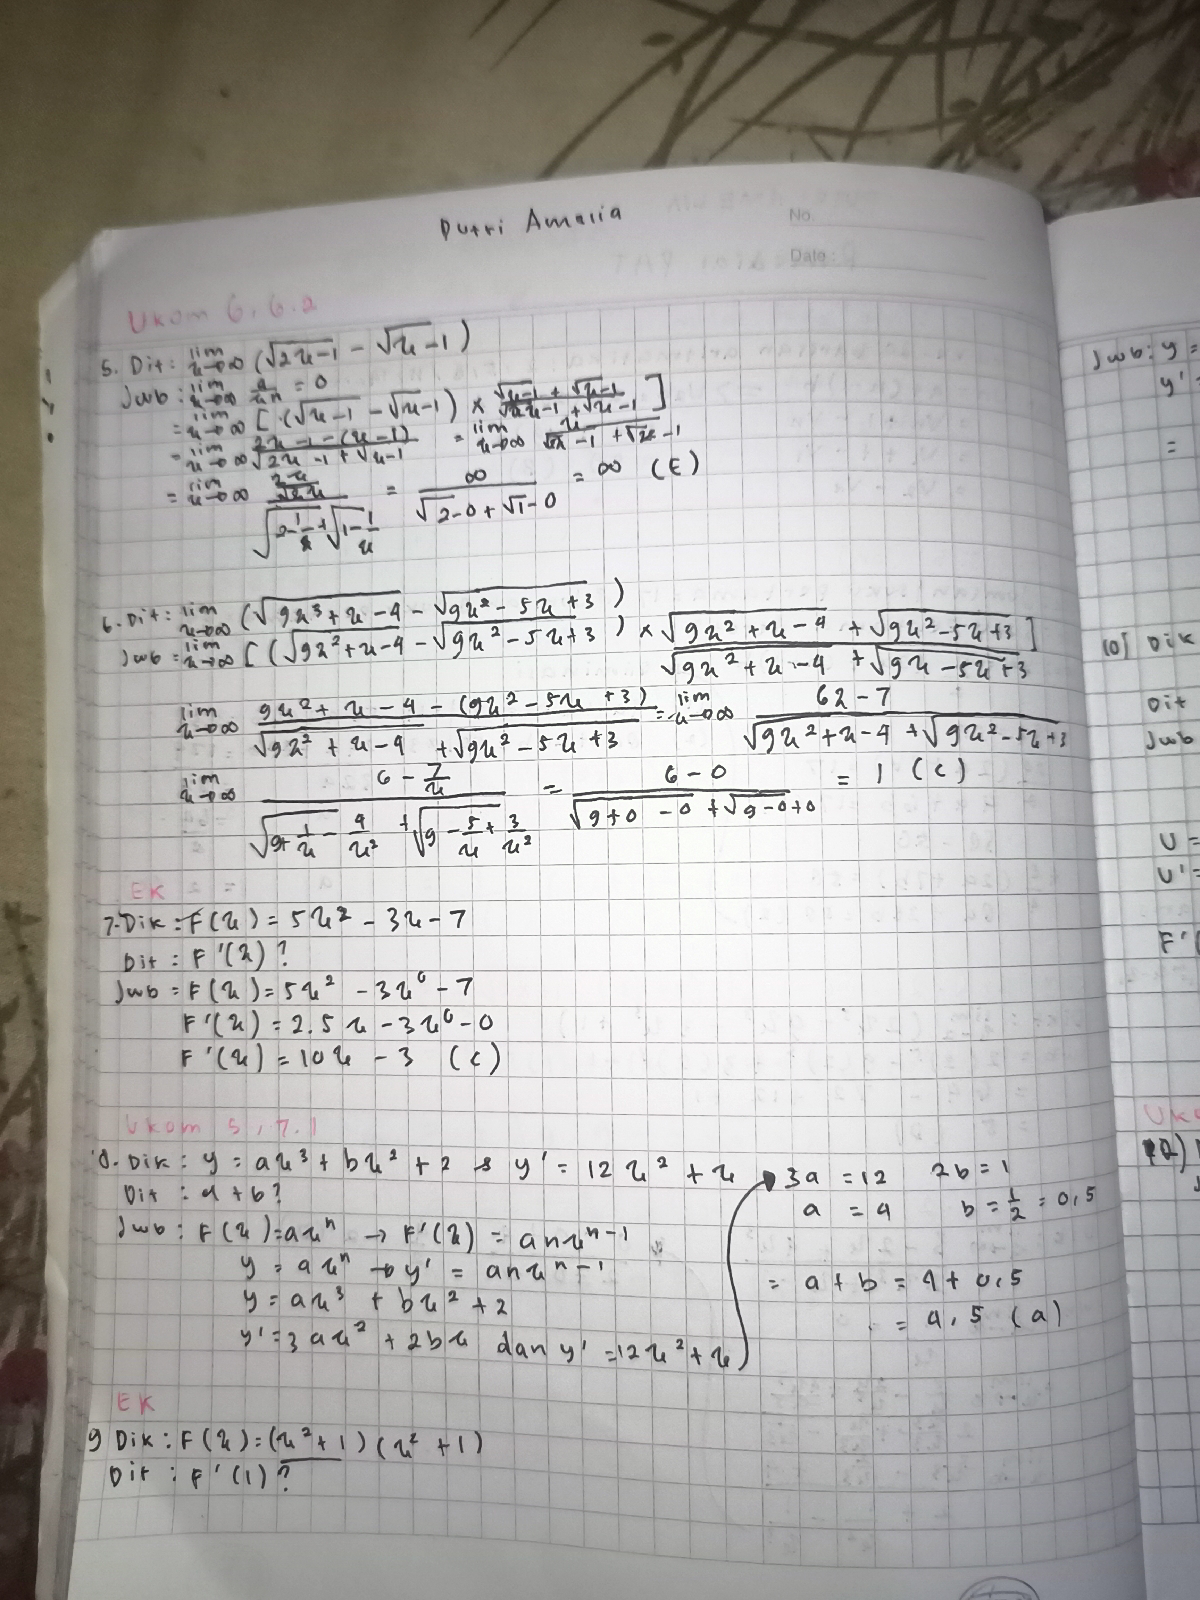 Putri Amalia
No.
Date:
Ukom 6, 6.2
5. Dit: lim x→∞ (√2x-1 - √x-1)
Jwb: lim x→∞ a/xⁿ = 0
= lim x→∞ [(√x-1 - √x-1) × (√x-1 + √x-1)/(√2x-1 + √x-1)]
= lim x→∞ (2x-1-(x-1))/(√2x-1 + √x-1) = lim x→∞ x/(√2x-1 + √x-1)
= lim x→∞ / (√2-1/x + √1-1/x) = ∞/(√2-0 + √1-0) = ∞ (E)
6. Dit: lim x→∞ (√9x³+x-4 - √9x²-5x+3)
Jwb = lim x→∞ [(√9x²+x-4 - √9x²-5x+3) × (√9x²+x-4 + √9x²-5x+3)/(√9x²+x-4 + √9x-5x+3)]
lim x→∞ (9x²+x-4-(9x²-5x+3))/(√9x²+x-4 + √9x²-5x+3) = lim x→∞ (6x-7)/(√9x²+x-4 + √9x²-5x+3)
lim x→∞ (6-7/x)/(√9+1/x-4/x² + √9-5/x+3/x²) = (6-0)/(√9+0-0 + √9-0+0) = 1 (C)
EK
7. Dik: F(x) = 5x² - 3x - 7
Dit: F'(x)?
Jwb = F(x) = 5x² - 3x⁰ - 7
F'(x) = 2.5x - 3x⁰ - 0
F'(x) = 10x - 3 (C)
Ukom 5, 7.1
8. Dik: y = ax³ + bx² + 2 → y' = 12x² + x
Dit: a+b?
Jwb: F(x) = axⁿ → F'(x) = anxⁿ⁻¹
y = axⁿ → y' = anxⁿ⁻¹
y = ax³ + bx² + 2
y' = 3ax² + 2bx dan y' = 12x² + x
3a = 12 2b = 1
a = 4 b = 1/2 = 0,5
= a + b = 4 + 0,5
= 4,5 (a)
EK
9 Dik: F(x) = (x²+1)(x²+1)
Dit: F'(1)?
Jwb: y =
y'
=
10) Dik
Dit
Jwb
U =
U' =
F'(